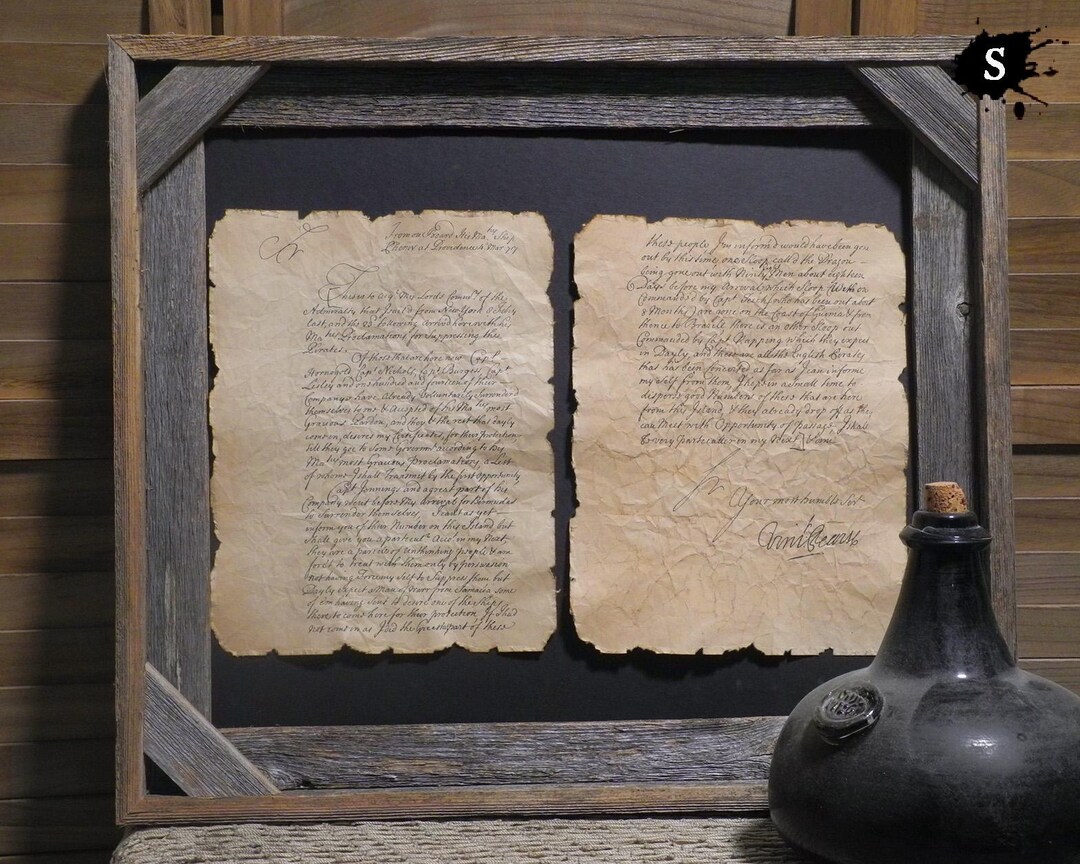 S
Sr
From on board His Maty Ship
Phenix at Providence 4 Mar 17
These to acqt My Lords Comrs of the
Admiralty, that I sail'd from New York
last, and the 23 following arrived here with his
Matyes Proclamations for Suppressing these
Pirates.
Of those that are here now Capt
Hornegold Capt Nichols, Capt Burges, Capt
Lesley and one hundred and fourteen of their
Companys have already Voluntarily Surrendred
themselves to me & Accepted of his Matys most
Gracious Pardon, and they & the rest that dayly
come in, desires my Certificates, for their protection
till they get to Some Governmt according to his
Matyes most Gracious Proclamations, a List
of whome I shall Transmit by the first opportunity
Capt Jennings and a great part of his
Company went before this arrival for Bermudas
to Surrender themselves. I can't as yet
inform you of their Number on this Island, but
Shall give you a particulr Acct in my Next,
they are a parcele of Unthinking People & am
forc'd to treat with them only by perswasion
not having Force my Self to Suppress them but
Dayly Expect a Man of Warr from Jamaica some
of 'em having Sent it desire one of the Ships
there to come here for their protection. If I had
not come in as I did the Greatest part of these
these people I'm inform'd would have been gon
out by this time, one Sloop call'd the Dragon
being gone out with Ninety Men about eighteen
Days before my Arrival which Sloop (with on
Commanded by Capt Teech, who has been out abot
8 Months) are gone on the Coast of Guinea & from
thence to Brazile there is an other Sloop out
Commanded by Capt Napping which they expect
in Dayly and these are all the English Pirates
that has been Concerted as far as I can informe
my Self from them. I hope in a Small time to
disperse good Numbers of these that are here
from this Island, & they already drop off as they
can Meet with Opportunity of Passage, I shall
be very particular in my Next. I am
Sr
Your most Humble Sert
Vinct Pearse